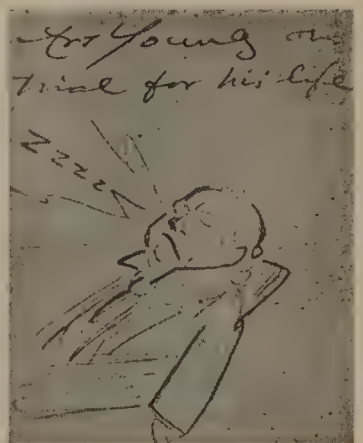 Art Young on
trial for his life
ZZZZZ